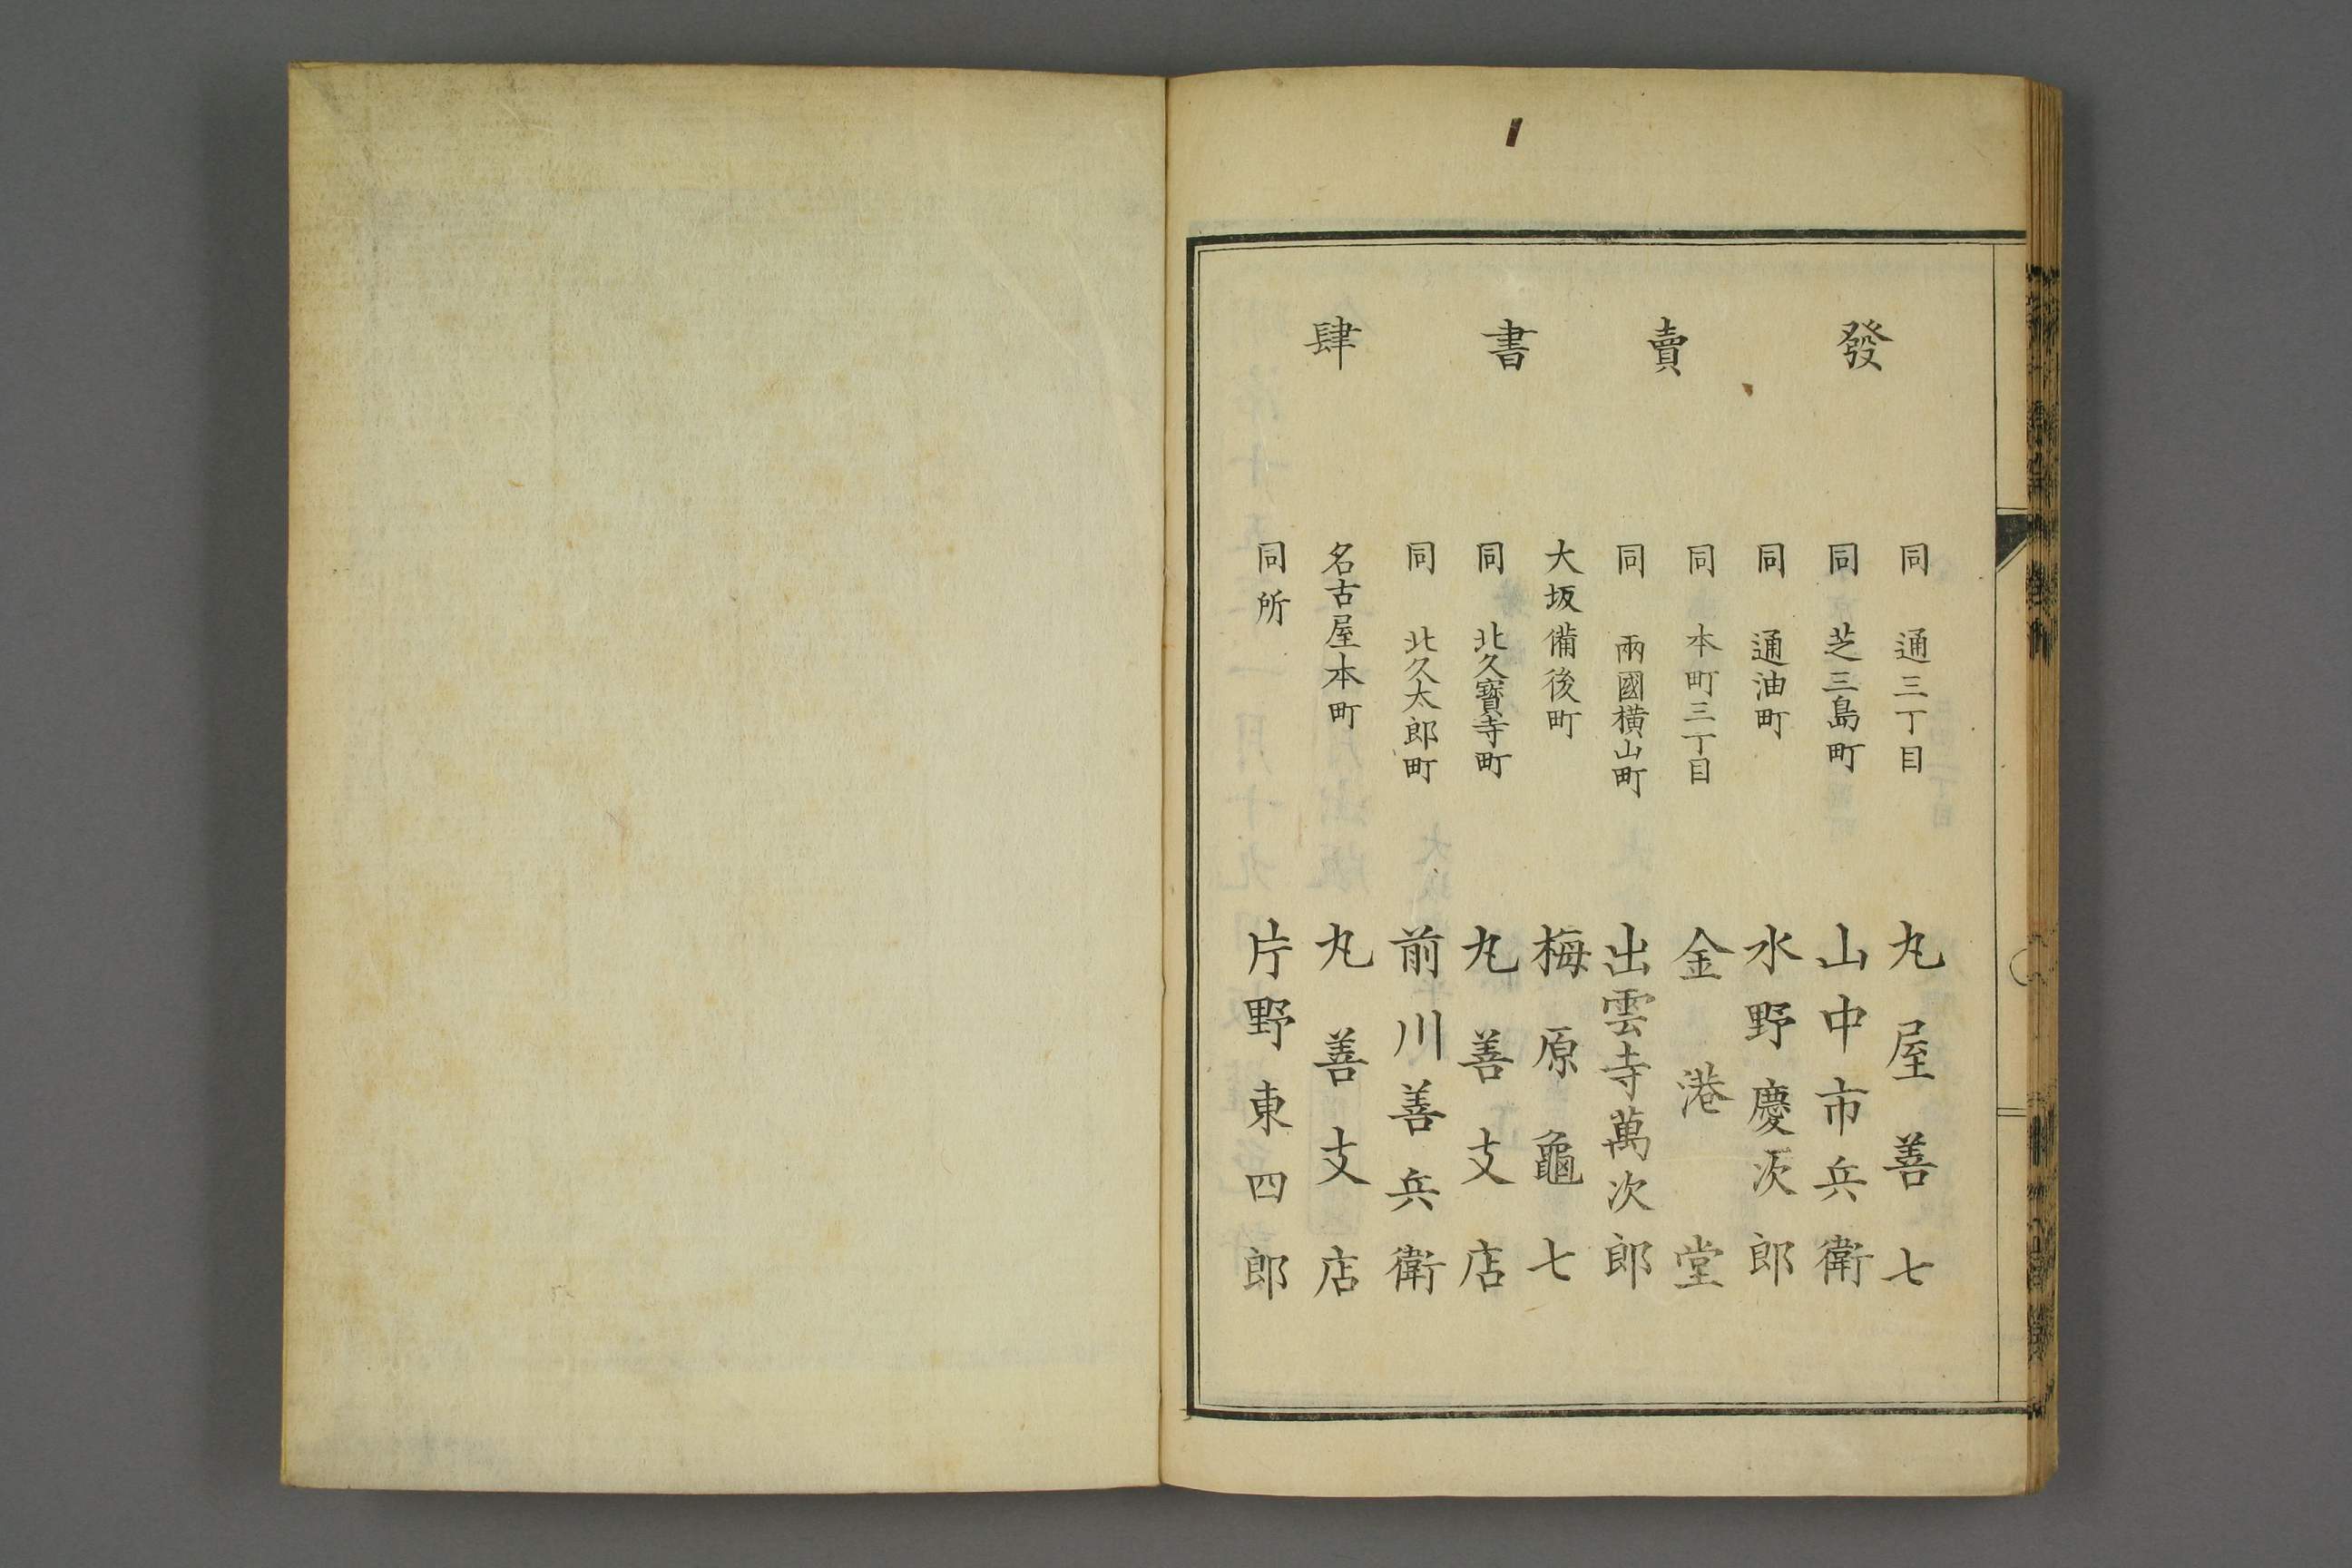 發賣書肆
同 通三丁目 丸屋善七
同 芝三島町 山中市兵衛
同 通油町 水野慶次郎
同 本町三丁目 金港堂
同 兩國横山町 出雲寺萬次郎
大坂備後町 梅原龜七
同 北久寶寺町 丸善支店
同 北久太郎町 前川善兵衛
名古屋本町 丸善支店
同所 片野東四郎